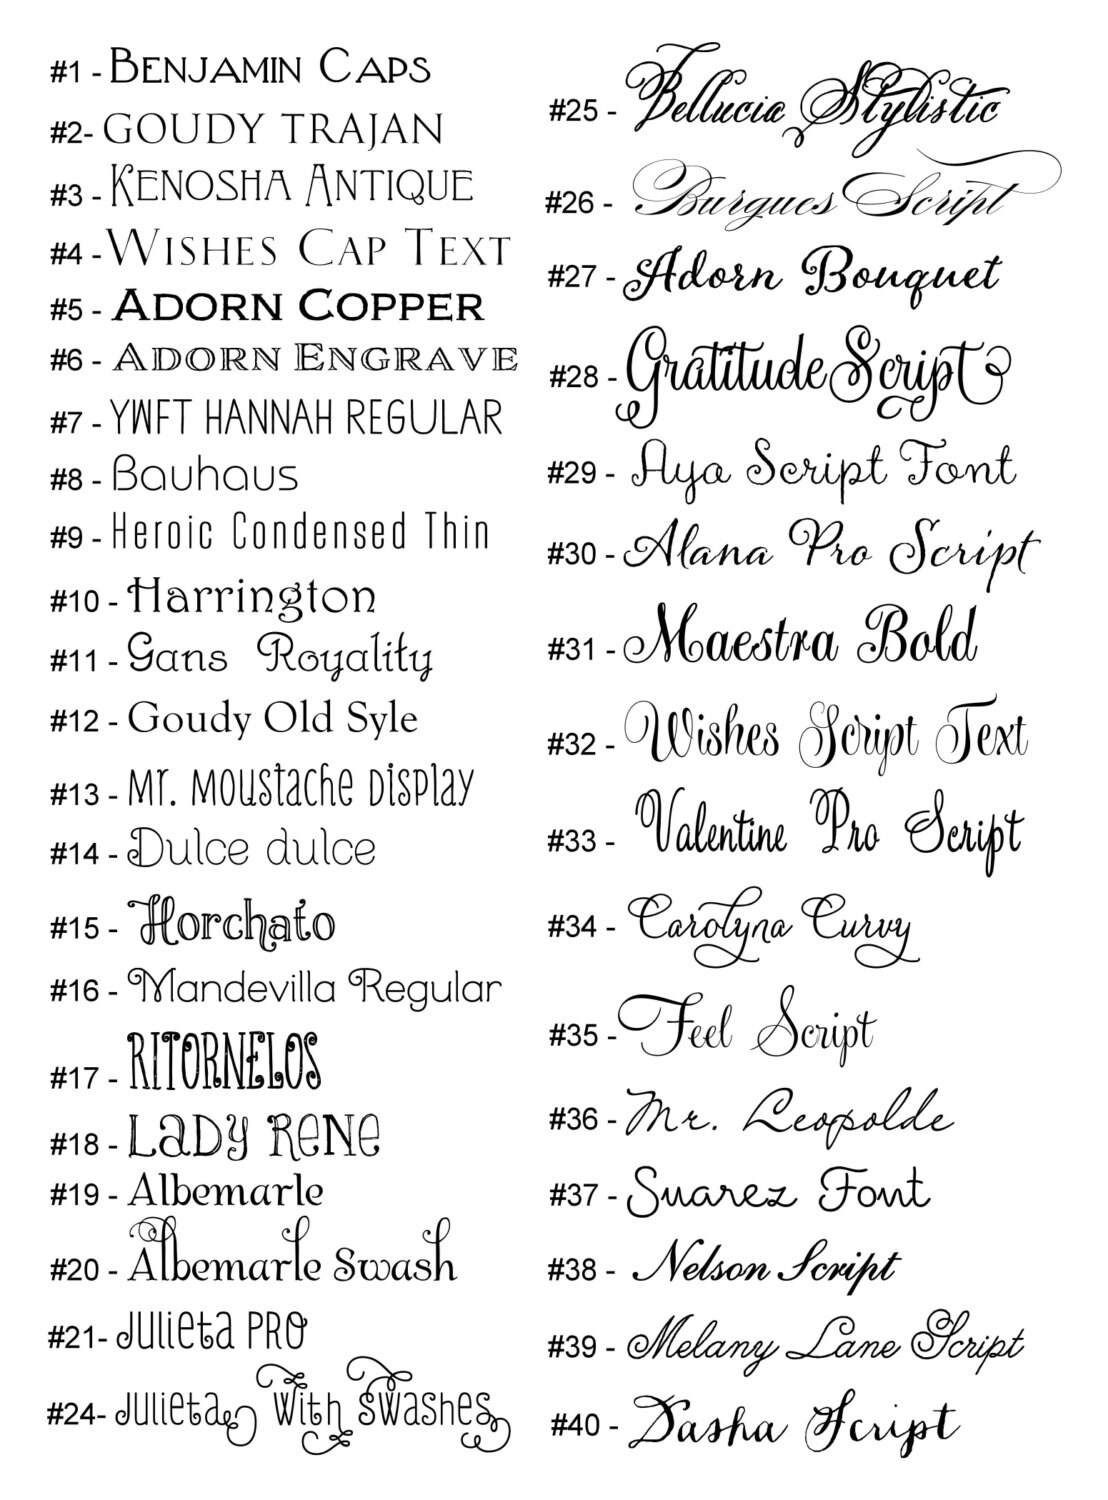 #1 - Benjamin Caps
#2- GOUDY TRAJAN
#3 - Kenosha Antique
#4 - Wishes Cap Text
#5 - Adorn Copper
#6 - Adorn Engrave
#7 - YWFT HANNAH REGULAR
#8 - Bauhaus
#9 - Heroic Condensed Thin
#10 - Harrington
#11 - Gans Royality
#12 - Goudy Old Syle
#13 - Mr. Moustache Display
#14 - Dulce dulce
#15 - Horchato
#16 - Mandevilla Regular
#17 - RITORNELOS
#18 - Lady Rene
#19 - Albemarle
#20 - Albemarle Swash
#21- Julieta PRO
#24- Julieta with swashes
#25 - Bellucia Stylistic
#26 - Burgues Script
#27 - Adorn Bouquet
#28 - Gratitude Script
#29 - Aya Script Font
#30 - Alana Pro Script
#31 - Maestra Bold
#32 - Wishes Script Text
#33 - Valentine Pro Script
#34 - Carolyna Curvy
#35 - Feel Script
#36 - Mr. Leopolde
#37 - Suarez Font
#38 - Nelson Script
#39 - Melany Lane Script
#40 - Dasha Script